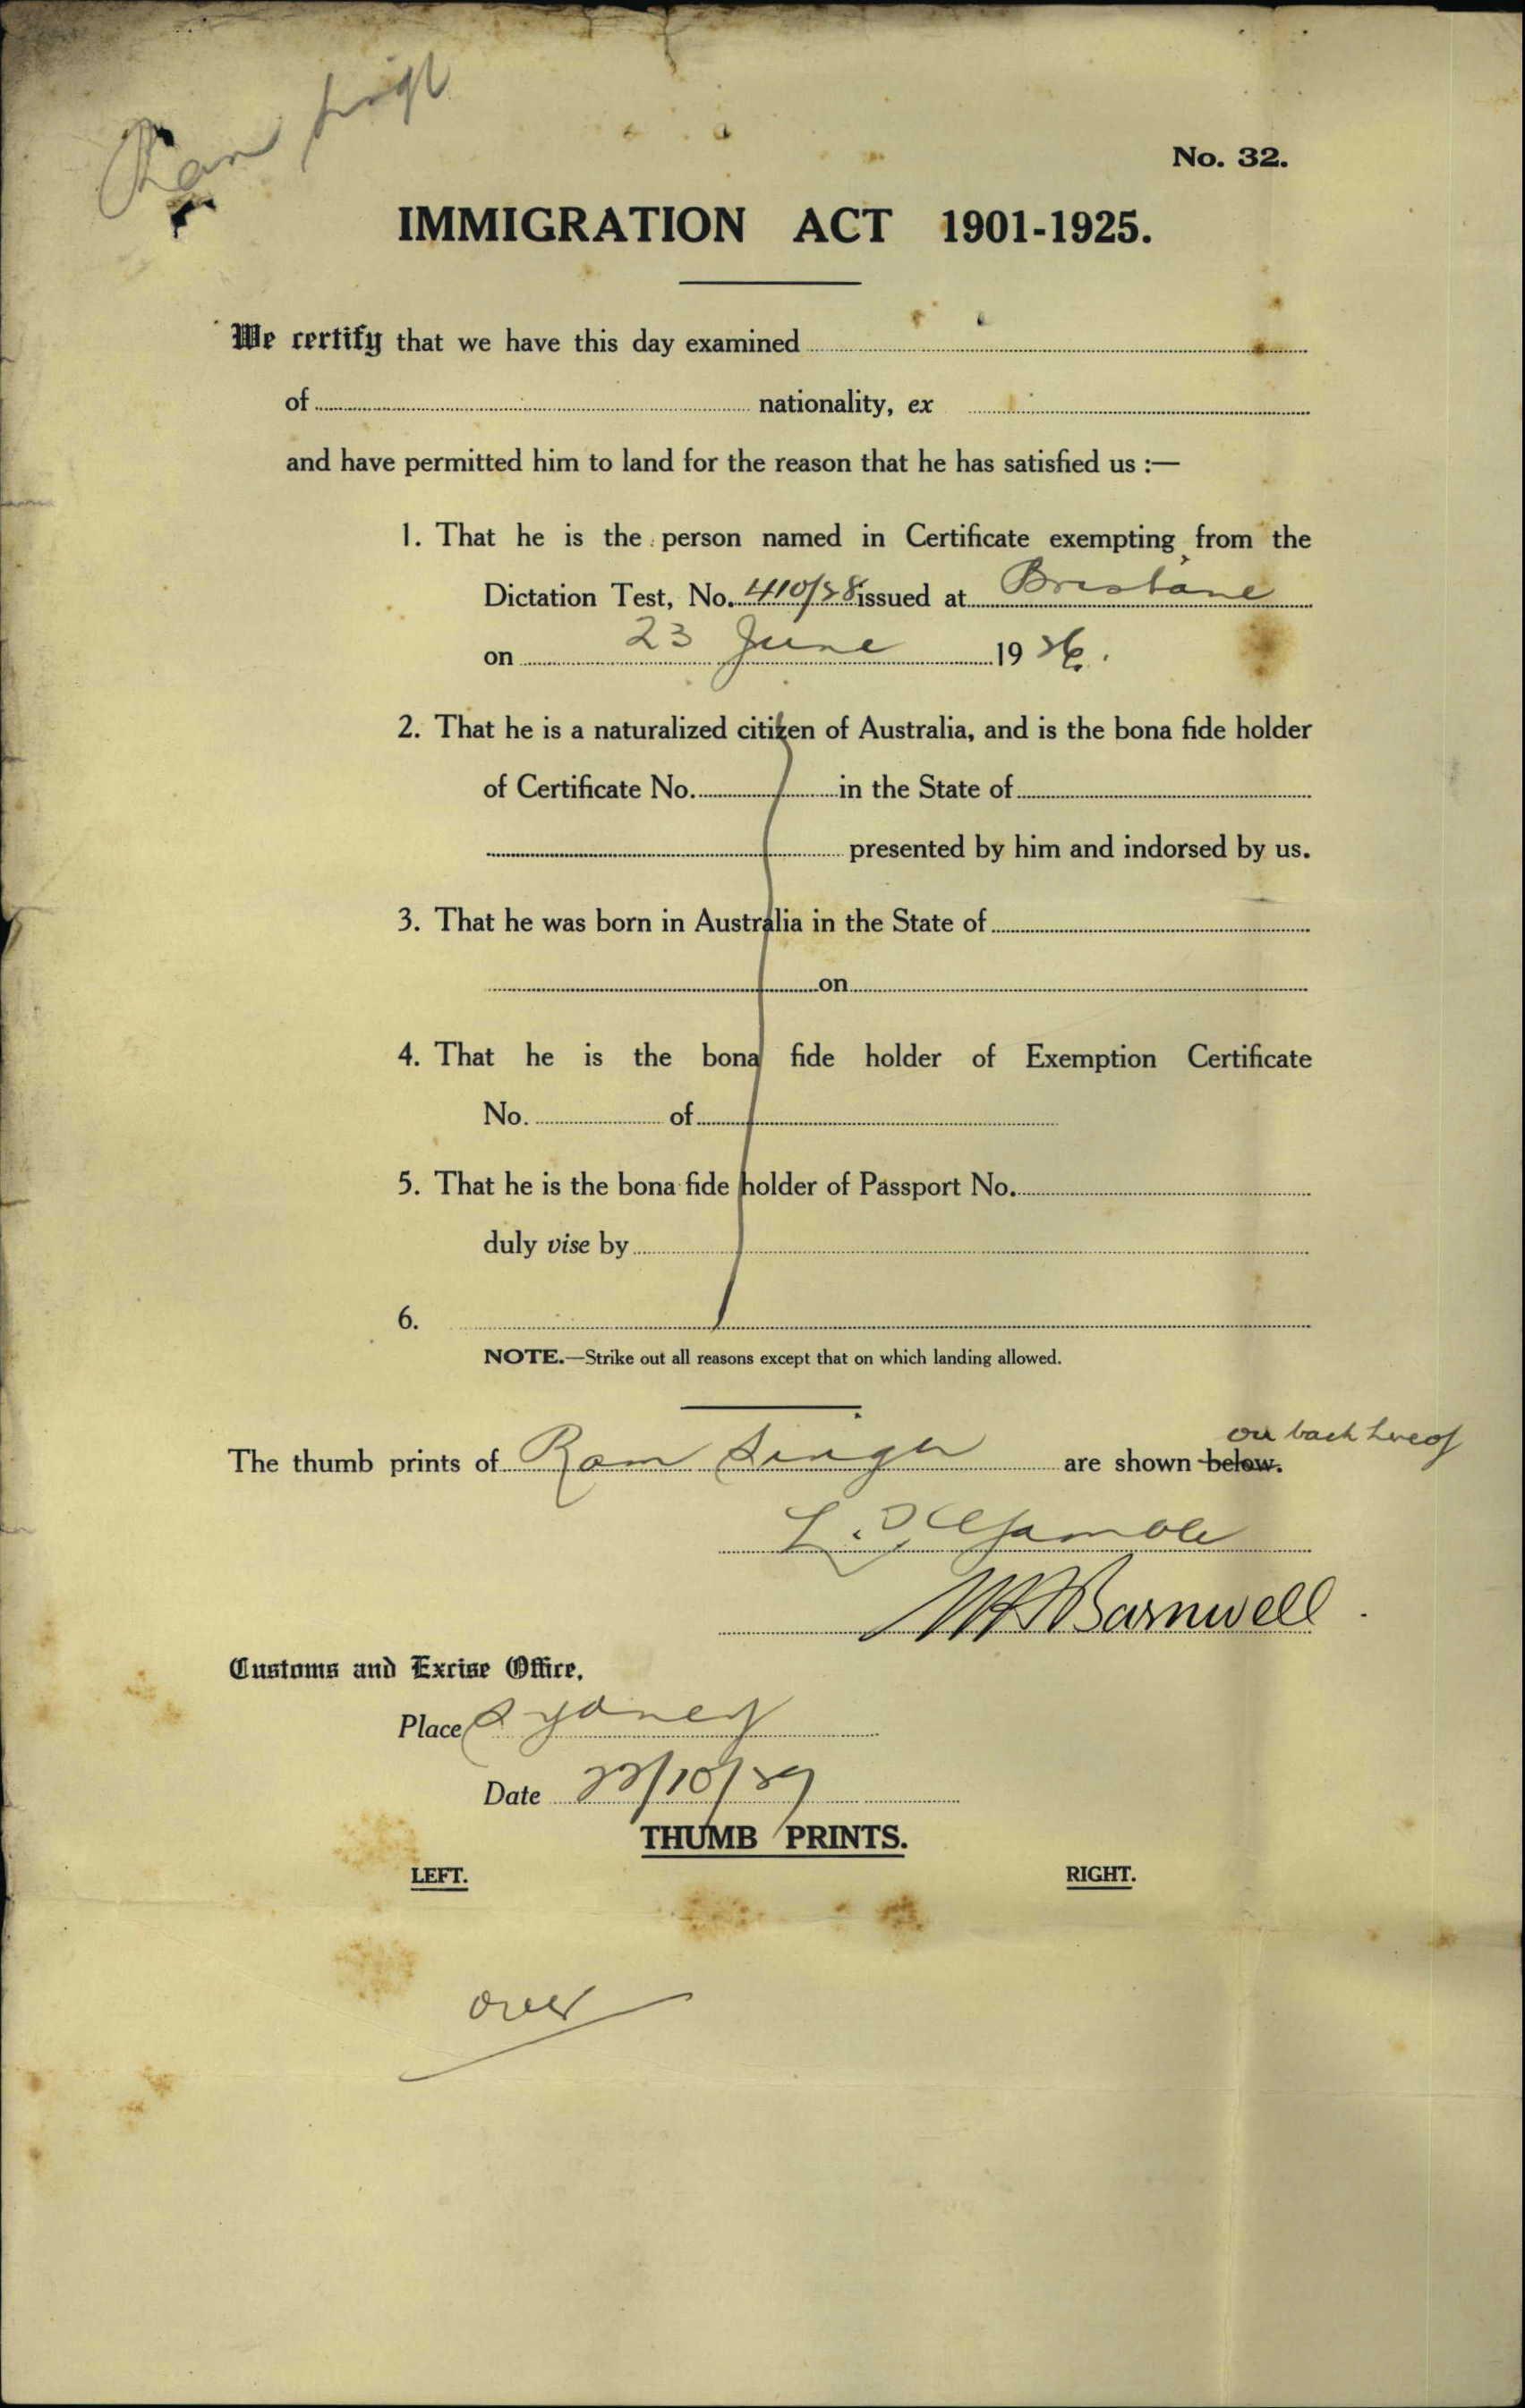 Ram Singh
No. 32.
IMMIGRATION ACT 1901-1925.
We certify that we have this day examined
of nationality, ex
and have permitted him to land for the reason that he has satisfied us :—
1. That he is the person named in Certificate exempting from the
Dictation Test, No. issued at Brisbane
on 23 June 19
2. That he is a naturalized citizen of Australia, and is the bona fide holder
of Certificate No. in the State of
presented by him and indorsed by us.
3. That he was born in Australia in the State of
on
4. That he is the bona fide holder of Exemption Certificate
No. of
5. That he is the bona fide holder of Passport No.
duly vise by
6.
NOTE.—Strike out all reasons except that on which landing allowed.
on back hereof
The thumb prints of Ram Singh are shown below.
Gamble
Barnwell
Customs and Excise Office,
Place Sydney
Date
THUMB PRINTS.
LEFT. RIGHT.
over